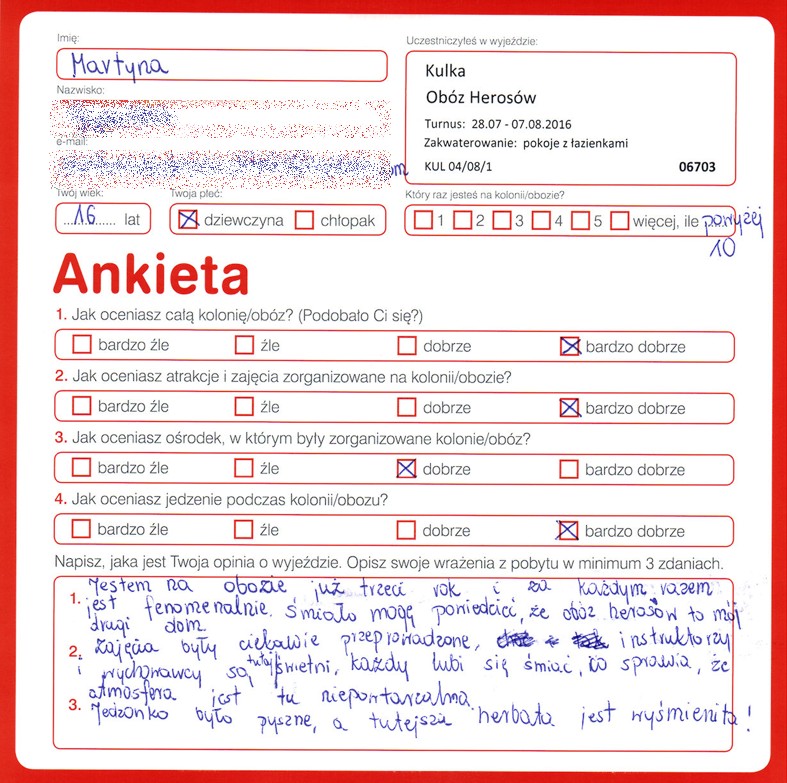 Imię:
Martyna
Nazwisko:
e-mail:
om
Twój wiek:
16 lat
Twoja płeć:
dziewczyna chłopak
Uczestniczyłeś w wyjeździe:
Kulka
Obóz Herosów
Turnus: 28.07 - 07.08.2016
Zakwaterowanie: pokoje z łazienkami
KUL 04/08/1 06703
Który raz jesteś na kolonii/obozie?
1 2 3 4 5 więcej, ile powyżej
10
Ankieta
1. Jak oceniasz całą kolonię/obóz? (Podobało Ci się?)
bardzo źle źle dobrze bardzo dobrze
2. Jak oceniasz atrakcje i zajęcia zorganizowane na kolonii/obozie?
bardzo źle źle dobrze bardzo dobrze
3. Jak oceniasz ośrodek, w którym były zorganizowane kolonie/obóz?
bardzo źle źle dobrze bardzo dobrze
4. Jak oceniasz jedzenie podczas kolonii/obozu?
bardzo źle źle dobrze bardzo dobrze
Napisz, jaka jest Twoja opinia o wyjeździe. Opisz swoje wrażenia z pobytu w minimum 3 zdaniach.
1. Jestem na obozie już trzeci rok i za każdym razem
jest fenomenalnie. Śmiało mogę powiedzieć, że obóz herosów to mój
drugi dom.
2. Zajęcia były ciekawie przeprowadzone, instruktorzy
i wychowawcy są tutaj świetni, każdy lubi się śmiać, co sprawia, że
atmosfera jest tu niepowtarzalna.
3. Jedzonko było pyszne, a tutejsza herbata jest wyśmienita!